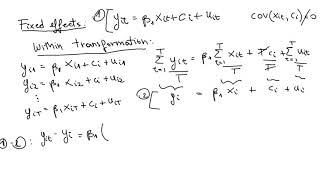 Fixed effects: ① [ y_it = β₁ x_it + c_i + u_it    cov(x_it, c_i) ≠ 0
Within transformation:
y_i1 = β₁ x_i1 + c_i + u_i1
y_i2 = β₁ x_i2 + c_i + u_i2
⋮
y_iT = β₁ x_iT + c_i + u_iT
∑_{t=1}^{T} y_it / T = β₁ ∑_{t=1}^{T} x_it / T + T c_i / T + ∑_{t=1}^{T} u_it / T
② [ y̅_i = β₁ x̅_i + c_i + u̅_i
①-②: y_it - y̅_i = β₁ (